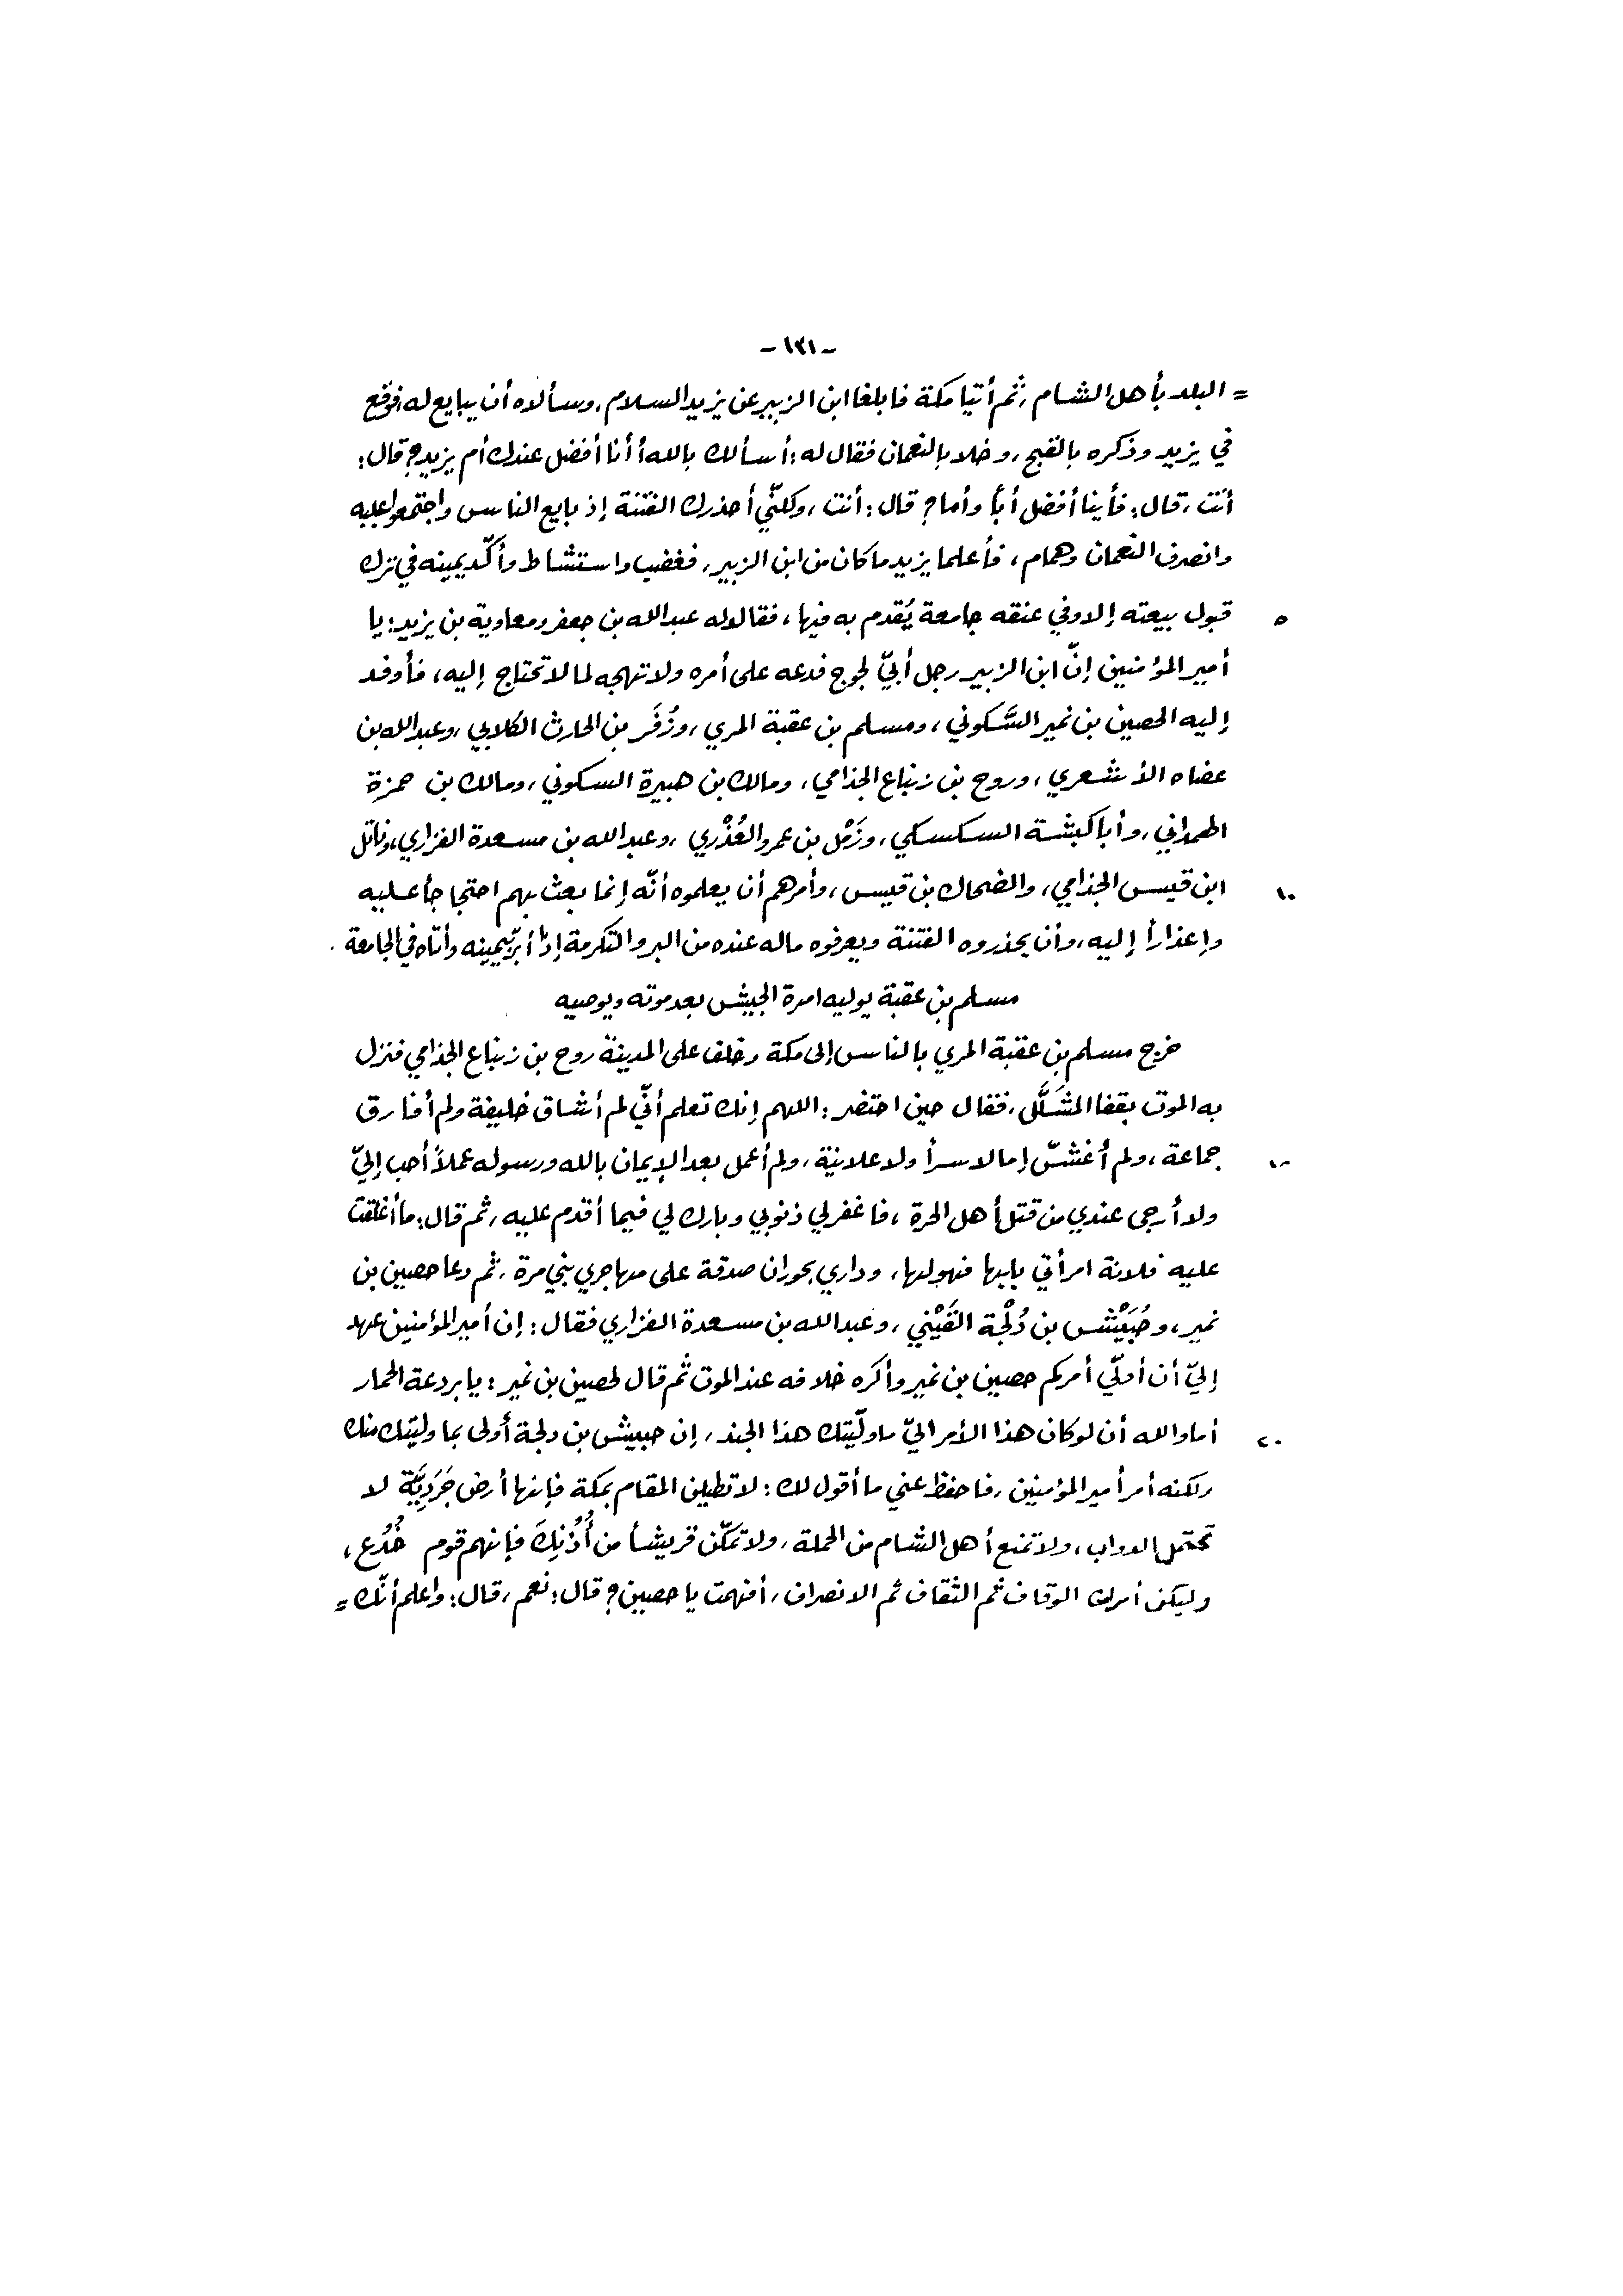 - ١٣١ -
= البلد بأهل الشام، ثم أتيا مكة فابلغا ابن الزبير عن يزيد السلام، وسألاه أن يبايع له، فوقع
في يزيد وذكره بالقبح، وخلا بالنعمان فقال له: أسألك بالله أأنا أفضل عندك أم يزيد؟ قال:
أنت، قال: فأينا أفضل أباً وأماً؟ قال: أنت، ولكنّي أحذرك الفتنة إذ بايع الناس واجتمعوا عليه
وانصرف النعمان وهمام، فأعلما يزيد ما كان من ابن الزبير، فغضب واستشاط وأكّد يمينه في ترك
قبول بيعته إلا وفي عنقه جامعة يُقدم به فيها، فقالا له عبد الله بن جعفر ومعاوية بن يزيد: يا
٥
أمير المؤمنين إنّ ابن الزبير رجل أبيّ لجوج فدعه على أمره ولا تهجه لما لا تحتاج إليه، فأوفد
إليه الحصين بن نمير السَّكوني، ومسلم بن عقبة المري، وزُفَر بن الحارث الكلابي، وعبد الله بن
عضاه الأشعري، وروح بن زنباع الجذامي، ومالك بن هبيرة السكوني، ومالك بن حمزة
الهمداني، وأبا كبشة السكسكي، وزَمْل بن عمرو العُذْري، وعبد الله بن مسعدة الفزاري، وناتل
ابن قيس الجذامي، والضحاك بن قيس، وأمرهم أن يعلموه أنّه إنما بعث بهم احتجاجاً عليه
١٠
وإعذاراً إليه، وأن يحذروه الفتنة ويعرفوه ما له عنده من البر والتكرمة إذا أبرّ يمينه وأتاه في الجامعة.
مسلم بن عقبة يوليه امرة الجيش بعد موته ويوصيه
خرج مسلم بن عقبة المري بالناس إلى مكة وخلف على المدينة روح بن زنباع الجذامي فنزل
به الموت بقفا المشَلَّل، فقال حين احتضر: اللهم إنك تعلم أنّي لم أشاق خليفة ولم أفارق
جماعة، ولم أغشّ إمالا سراً ولا علانية، ولم أعمل بعد الإيمان بالله ورسوله عملاً أحب إليّ
١٥
ولا أرجى عندي من قتل أهل الحرة، فاغفر لي ذنوبي وبارك لي فيما أقدم عليه، ثم قال: ما أغلقت
عليه فلانة امرأتي بابها فهو لها، وداري بحوران صدقة على مهاجري بني مرة، ثم دعا حصين بن
نمير، وحُبَيْش بن دُلْجة القَيْني، وعبد الله بن مسعدة الفزاري فقال: إن أمير المؤمنين عهد
إليّ أن أولّي أمركم حصين بن نمير وأكره خلافه عند الموت ثم قال لحصين بن نمير: يا بردعة الحمار
أما والله أن لو كان هذا الأمر اليّ ما ولّيتك هذا الجند، إن حبيش بن دلجة أولى بما وليتك منك
٢٠
ولكنه أمر أمير المؤمنين، فاحفظ عني ما أقول لك: لا تطيلن المقام بمكة فإنها أرض جَرَدِيَّة لا
تحتمل الدواب، ولا تمنع أهل الشام من الحملة، ولا تمكّن قريشاً من أُذُنِكَ فإنهم قوم خُدُع،
وليكن أمرك الوقاف ثم الثقاف ثم الانصراف، أفهمت يا حصين؟ قال: نعم، قال: واعلم أنّك =